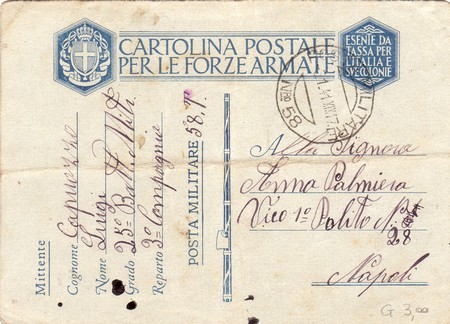 CARTOLINA POSTALE
PER LE FORZE ARMATE
ESENTE DA
TASSA PER
L'ITALIA E
SVE COLONIE
Nº 58
Mittente
Cognome Capuozzo
Nome Luigi
Grado 25º Batt. Mitr.
Reparto 3º Compagnia
POSTA MILITARE 58, 1º
Alla Signora
Anna Palmiera
Vico 1º Polito N.
28
Napoli
G 3,00